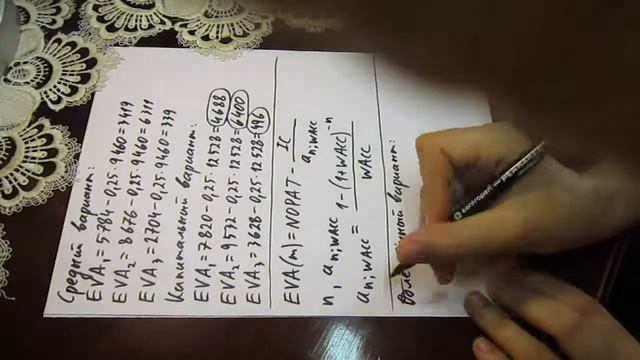 Средний вариант:
EVA₁ = 5784 - 0,25 · 9460 = 3419
EVA₂ = 8676 - 0,25 · 9460 = 6311
EVA₃ = 2704 - 0,25 · 9460 = 339
Капитальный вариант:
EVA₁ = 7820 - 0,25 · 12528 = 4688
EVA₂ = 9532 - 0,25 · 12528 = 6400
EVA₃ = 3628 - 0,25 · 12528 = 496
EVA(m) = NOPAT - IC / a n; WACC
n, a n; WACC
a n; WACC = 1 - (1+WACC)⁻ⁿ / WACC
вариант:
centropen